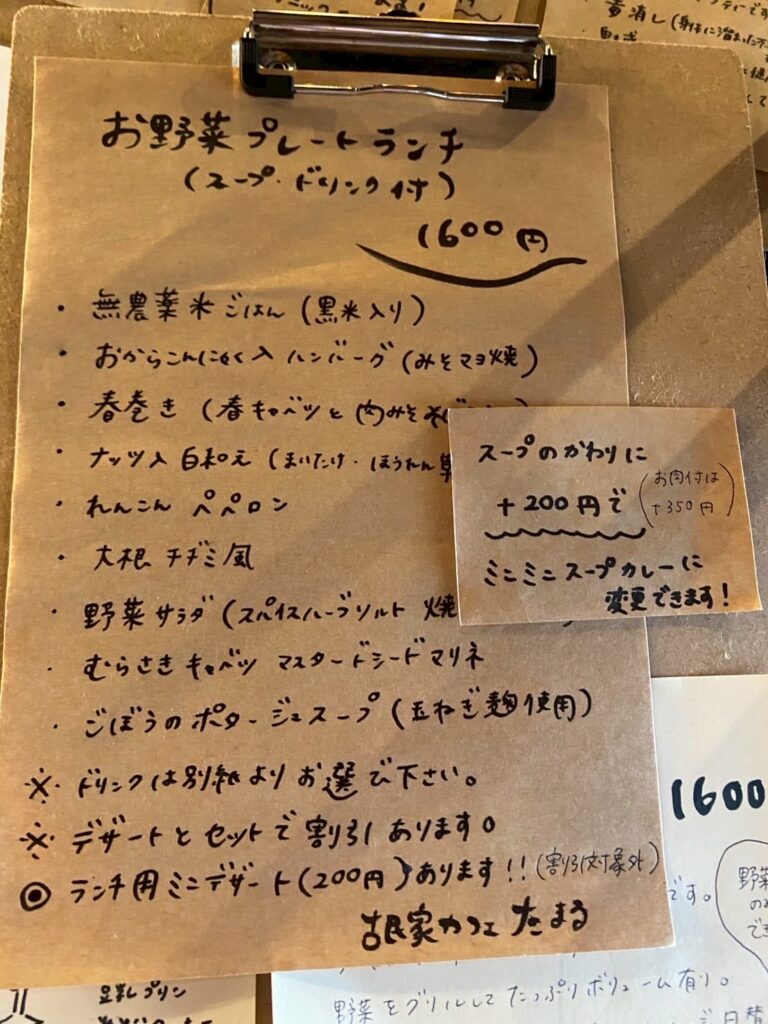 お野菜プレートランチ
(スープ・ドリンク付)
1600円
・無農薬米ごはん (黒米入り)
・おからこんにゃく入ハンバーグ (みそマヨ焼)
・春巻き (春キャベツと肉みそ
・ナッツ入白和え (まいたけ・ほうれん草
・れんこん ペペロン
・大根チヂミ風
・野菜サラダ (スパイスハーブソルト 焼
・むらさきキャベツ マスタードシードマリネ
・ごぼうのポタージュスープ (玉ねぎ麹使用)
※ドリンクは別紙よりお選び下さい。
※デザートとセットで割引あります。
◎ランチ用ミニデザート(200円)あります!!(割引対象外)
古民家カフェ たまる
スープのかわりに
+200円で
(お肉付は
+350円)
ミニミニスープカレーに
変更できます!
1600
野菜
です。
野菜をグリルしてたっぷりボリューム有り。
日替
豆乳プリン